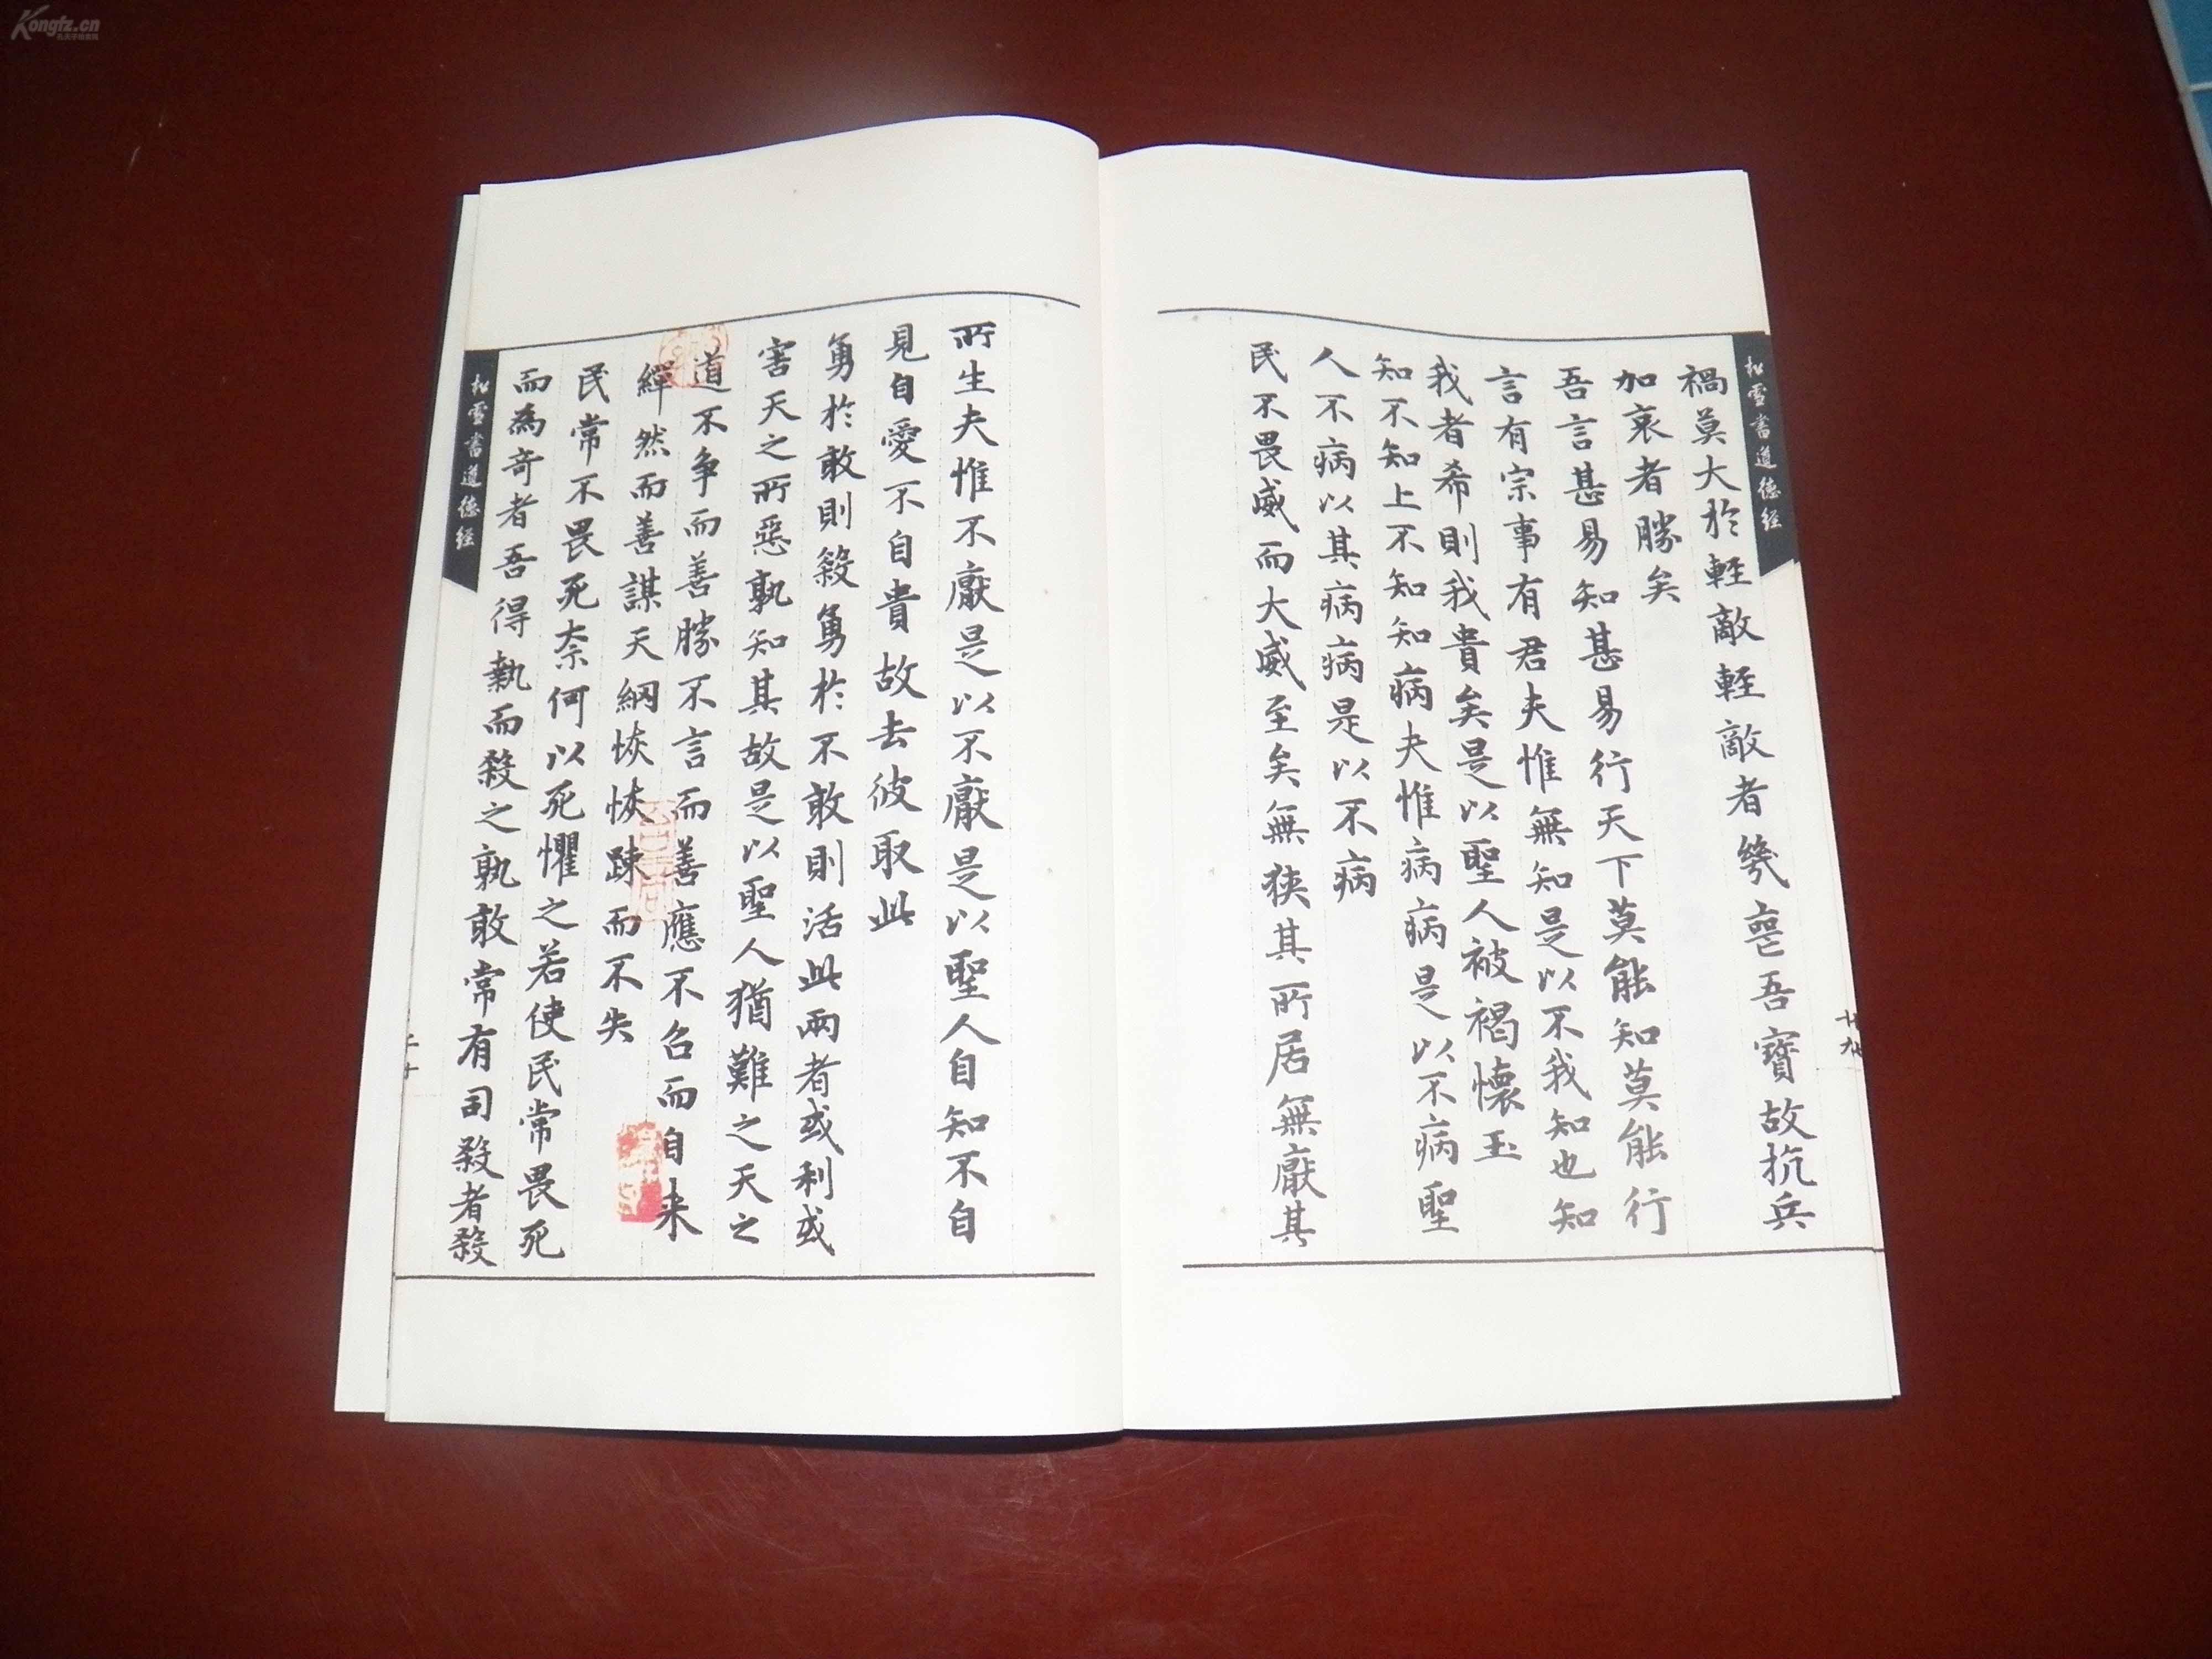 松雪書道德經
禍莫大於輕敵輕敵者幾喪吾寶故抗兵
加哀者勝矣
吾言甚易知甚易行天下莫能知莫能行
言有宗事有君夫惟無知是以不我知也知
我者希則我貴矣是以聖人被褐懷玉
知不知上不知知病夫惟病病是以不病聖
人不病以其病病是以不病
民不畏威而大威至矣無狹其所居無厭其
十九
所生夫惟不厭是以不厭是以聖人自知不自
見自愛不自貴故去彼取此
勇於敢則殺勇於不敢則活此兩者或利或
害天之所惡孰知其故是以聖人猶難之天之
道不爭而善勝不言而善應不召而自来
繟然而善謀天網恢恢踈而不失
民常不畏死奈何以死懼之若使民常畏死
而為奇者吾得執而殺之孰敢常有司殺者殺
松雪書道德經
二十
Kongfz.cn